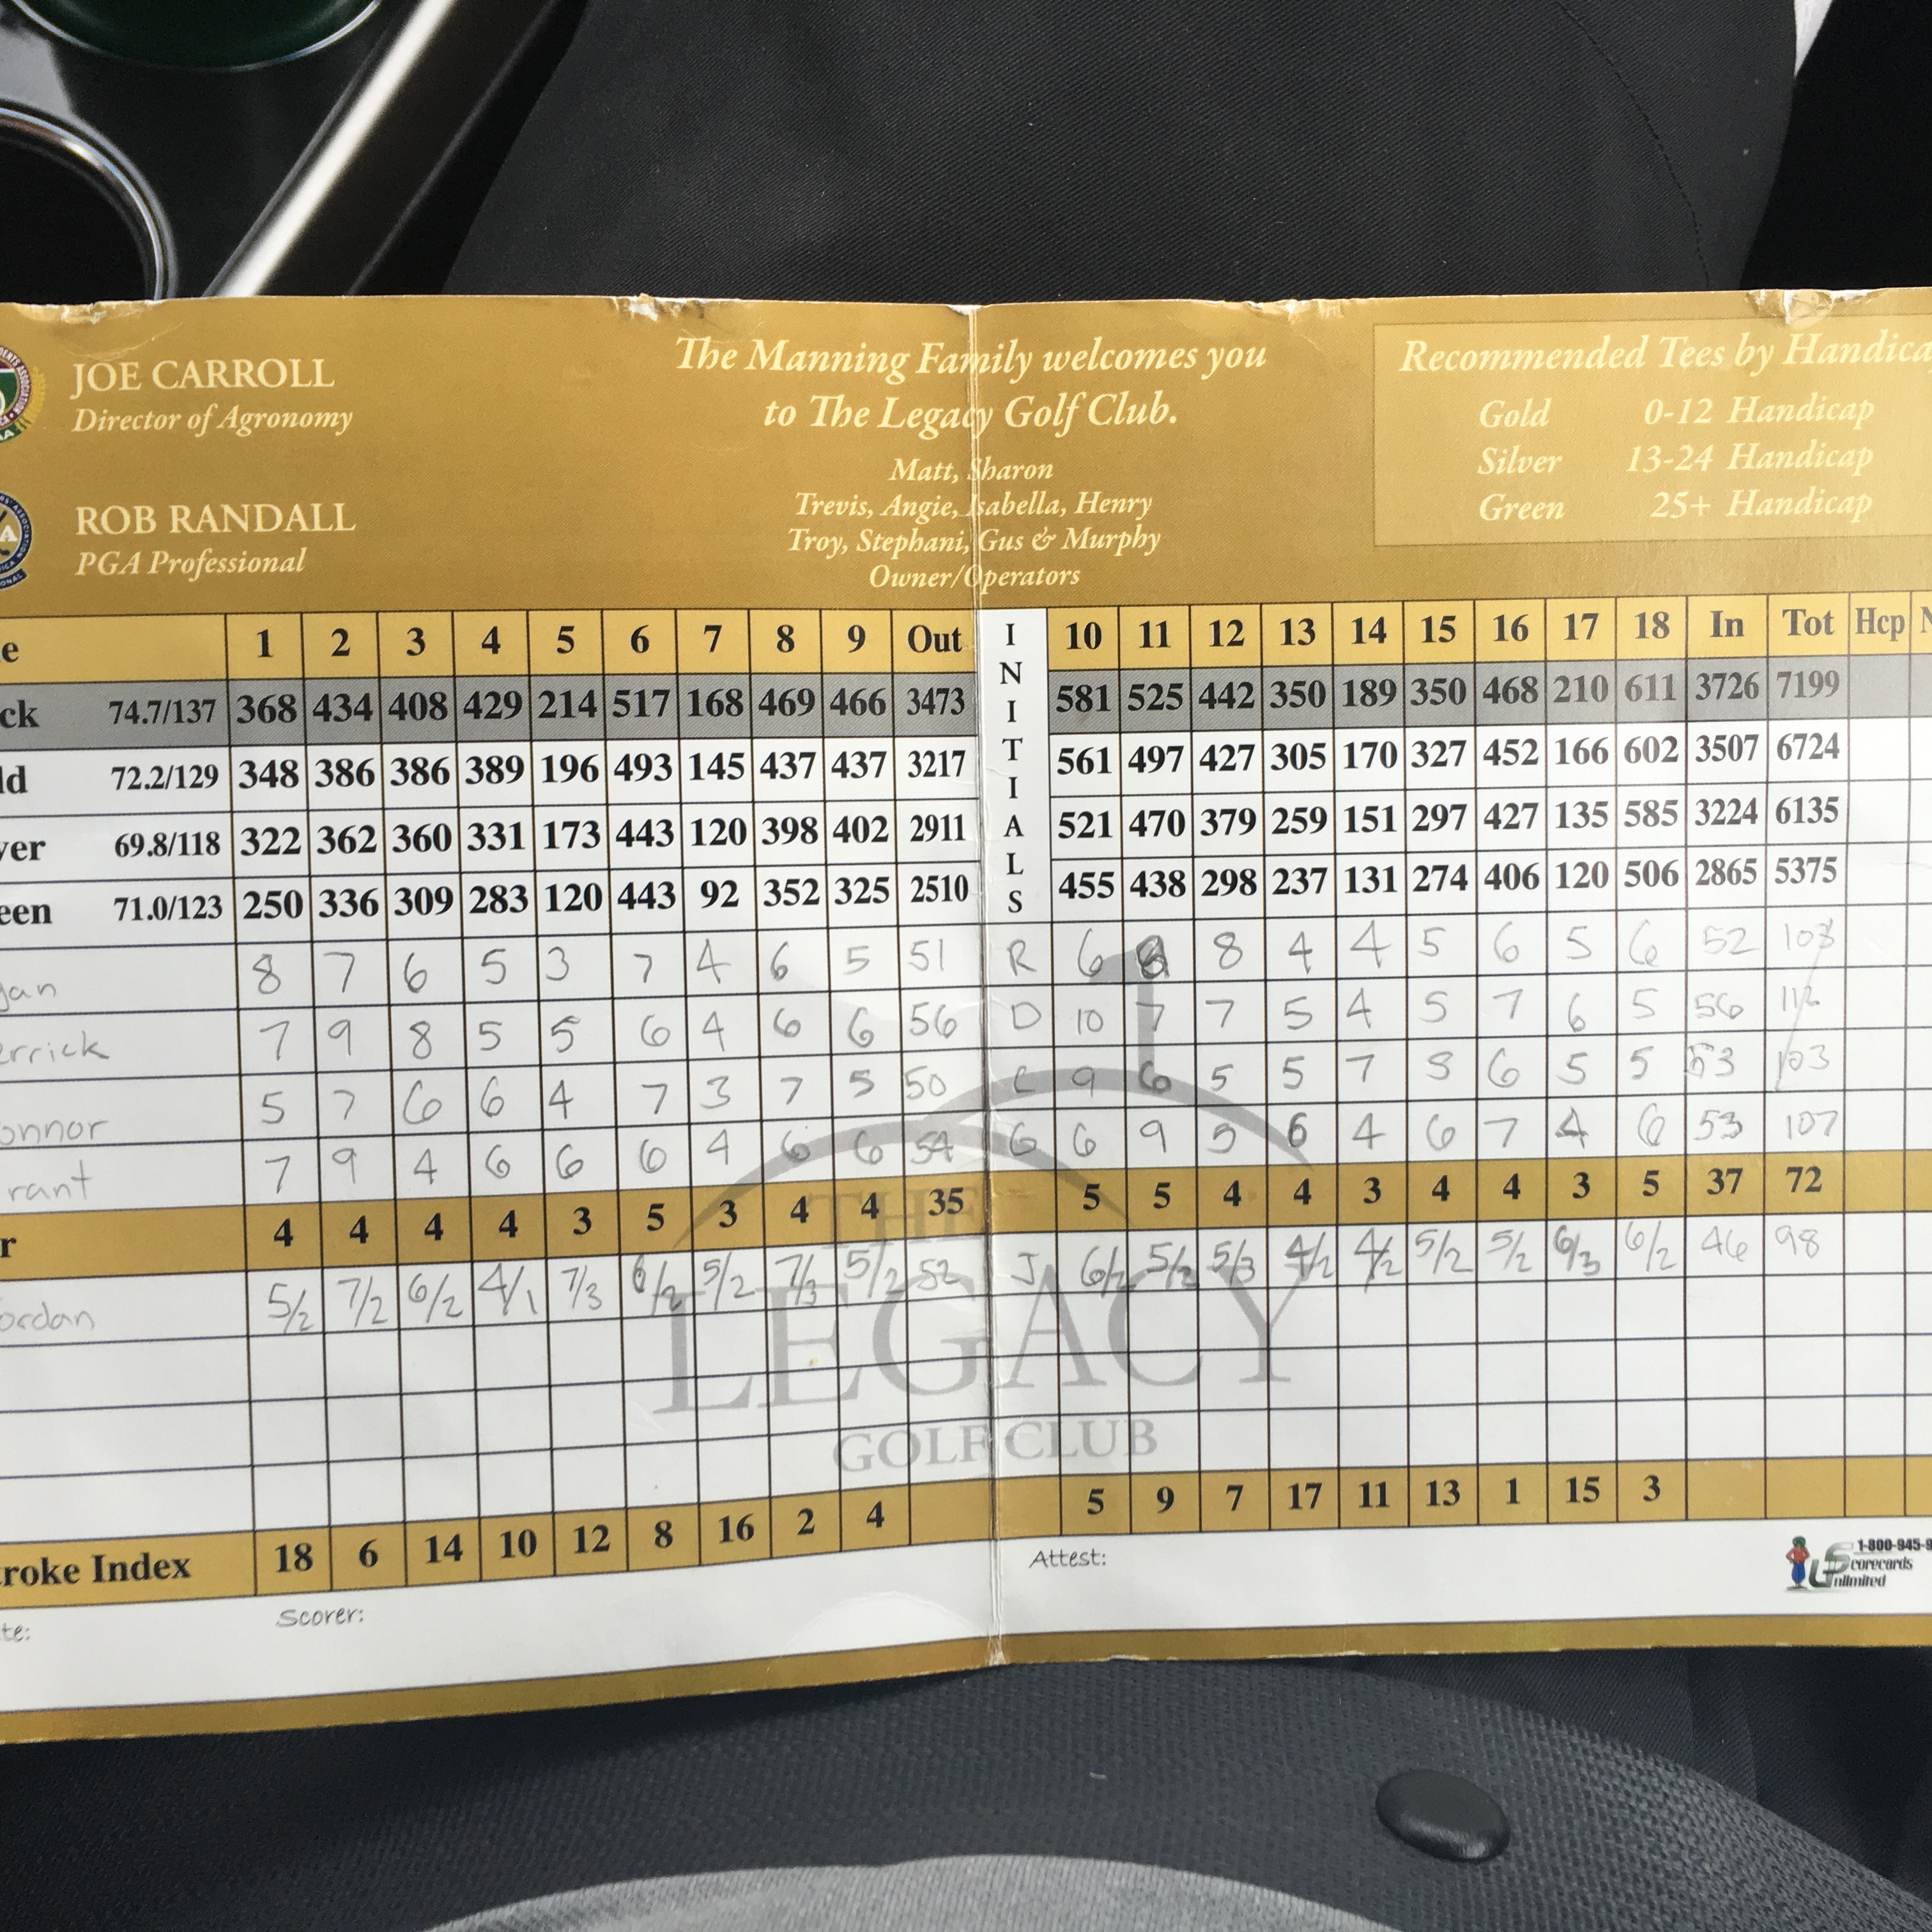 JOE CARROLL
Director of Agronomy
ROB RANDALL
PGA Professional
The Manning Family welcomes you
to The Legacy Golf Club.
Matt, Sharon
Trevis, Angie, Isabella, Henry
Troy, Stephani, Gus & Murphy
Owner/Operators
Recommended Tees by Handica
Gold 0-12 Handicap
Silver 13-24 Handicap
Green 25+ Handicap
e 1 2 3 4 5 6 7 8 9 Out INITIALS 10 11 12 13 14 15 16 17 18 In Tot Hcp N
ck 74.7/137 368 434 408 429 214 517 168 469 466 3473 581 525 442 350 189 350 468 210 611 3726 7199
ld 72.2/129 348 386 386 389 196 493 145 437 437 3217 561 497 427 305 170 327 452 166 602 3507 6724
ver 69.8/118 322 362 360 331 173 443 120 398 402 2911 521 470 379 259 151 297 427 135 585 3224 6135
een 71.0/123 250 336 309 283 120 443 92 352 325 2510 455 438 298 237 131 274 406 120 506 2865 5375
yan 8 7 6 5 3 7 4 6 5 51 R 6 8 8 4 4 5 6 5 6 52 103
errick 7 9 8 5 5 6 4 6 6 56 D 10 7 7 5 4 5 7 6 5 56 112
onnor 5 7 6 6 4 7 3 7 5 50 C 9 6 5 5 7 5 6 5 5 53 103
rant 7 9 4 6 6 6 4 6 6 54 G 6 9 5 6 4 6 7 4 6 53 107
r 4 4 4 4 3 5 3 4 4 35 5 5 4 4 3 4 4 3 5 37 72
ordan 5/2 7/2 6/2 4/1 7/3 6/2 5/2 7/3 5/2 52 J 6/2 5/2 5/3 4/2 4/2 5/2 5/2 6/3 6/2 46 98
THE
LEGACY
GOLF CLUB
troke Index 18 6 14 10 12 8 16 2 4 5 9 7 17 11 13 1 15 3
te: Scorer: Attest:
1-800-945-9
Scorecards
Unlimited